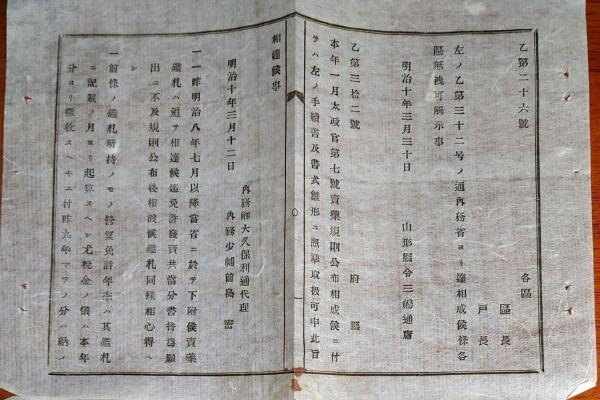 乙第二十六號
各區
區長
戸長
左ノ乙第三十二号ノ通内務省ヨリ達相成候條各
區無洩可觸示事
明治十年三月三十日
山形縣令三島通庸
乙第三拾二號
府縣
本年一月太政官第七號賣藥規則公布相成候ニ付
テハ左ノ手續書及書式雛形ニ照準取扱可申此旨
相達候事
明治十年三月十二日
内務卿大久保利通代理
内務少輔前島密
一一昨明治八年七月以降當省ニ於テ下附候賣藥
鑑札ハ追テ相達候迄免許發賣共當分書替為願
出ニ不及規則公布後相渡候鑑札同様相心得ヘ
シ
一前條ノ鑑札所持ノモノ營業免許年季ハ其鑑札
ニ記載ノ月ヨリ起算スヘシ尤税金ノ儀ハ本年
分ヨリ徴收スヘキニ付昨九年マテノ分ハ納ノ